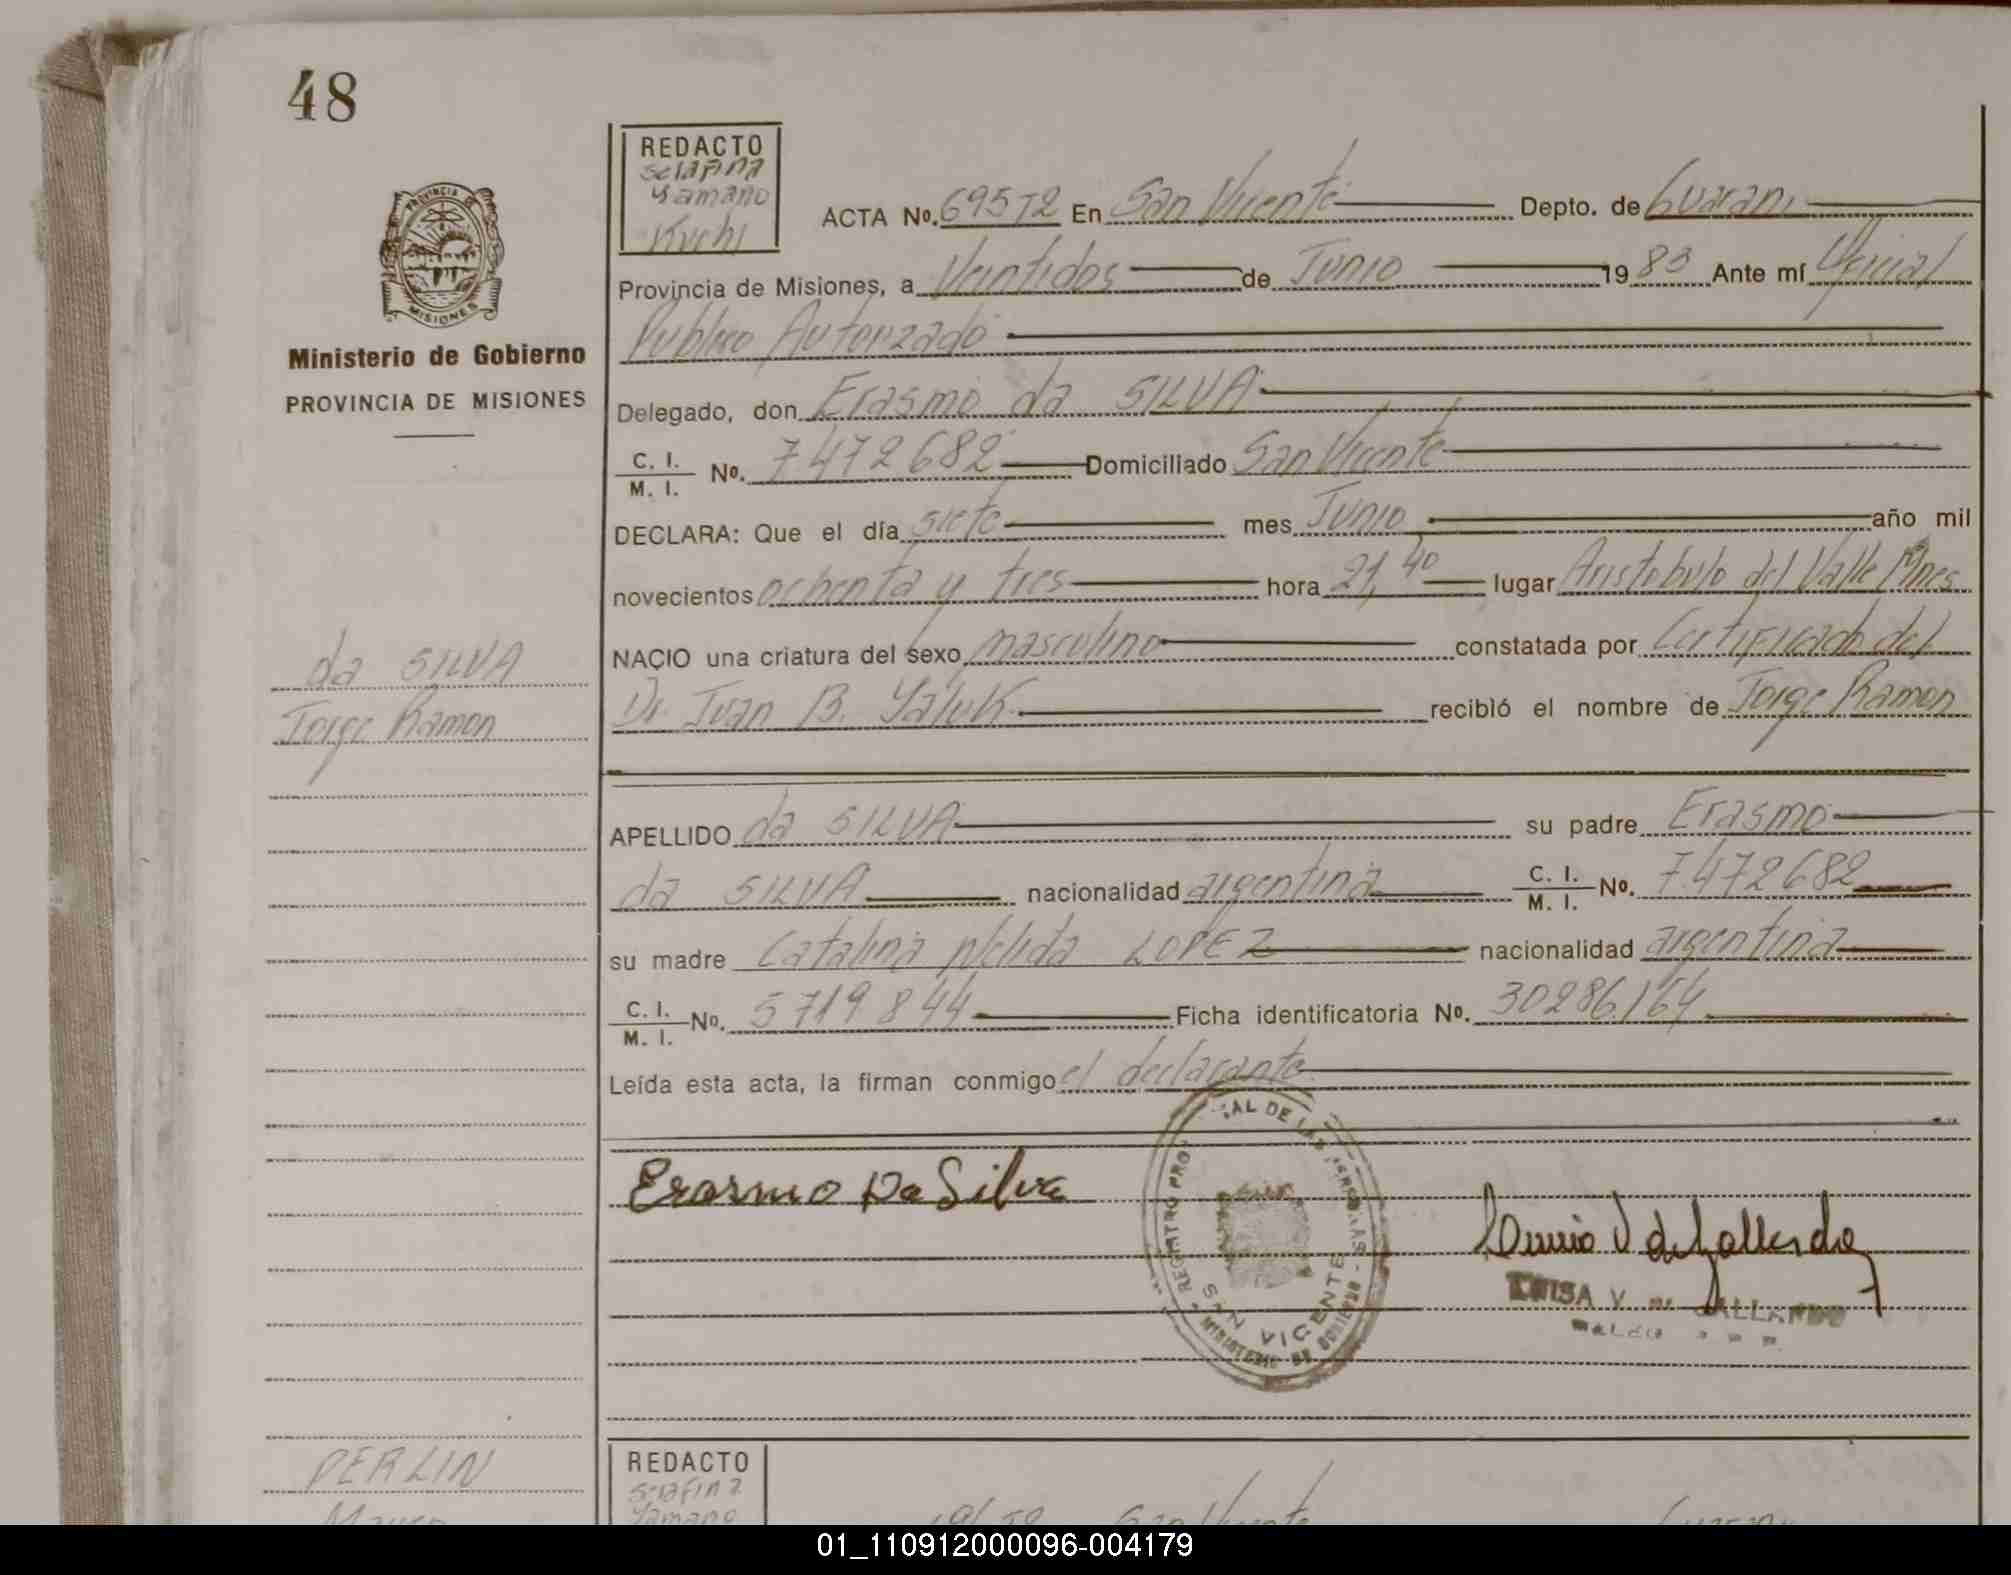 48
REDACTO
Serafina
Yamano
Kuchi
PROVINCIA DE
MISIONES
Ministerio de Gobierno
PROVINCIA DE MISIONES
ACTA No. 69572 En San Vicente Depto. de Guarani
Provincia de Misiones, a Veintidos de Junio 1983 Ante mí Oficial
Publico Autorizado
Delegado, don Erasmo da SILVA
C. I. / M. I. No. 7472682 Domiciliado San Vicente
DECLARA: Que el día siete mes Junio año mil
novecientos ochenta y tres hora 21,40 lugar Aristobulo del Valle Mnes
NACIO una criatura del sexo masculino constatada por Certificado del
Dr. Juan B. Yaluk recibió el nombre de Jorge Ramon
da SILVA
Jorge Ramon
APELLIDO da SILVA su padre Erasmo
da SILVA nacionalidad argentina C. I. / M. I. No. 7.472682
su madre Catalina Nelida LOPEZ nacionalidad argentina
C. I. / M. I. No. 5719844 Ficha identificatoria No. 30286.164
Leída esta acta, la firman conmigo el declarante
Erasmo Da Silva
REGISTRO PRO AL DE LAS PERSONAS
SAN VICENTE
MINISTERIO DE GOBIERNO
LUISA V. DE GALLARDO
PERLIN
REDACTO
Serafina
Yamano
San Vicente
01_110912000096-004179